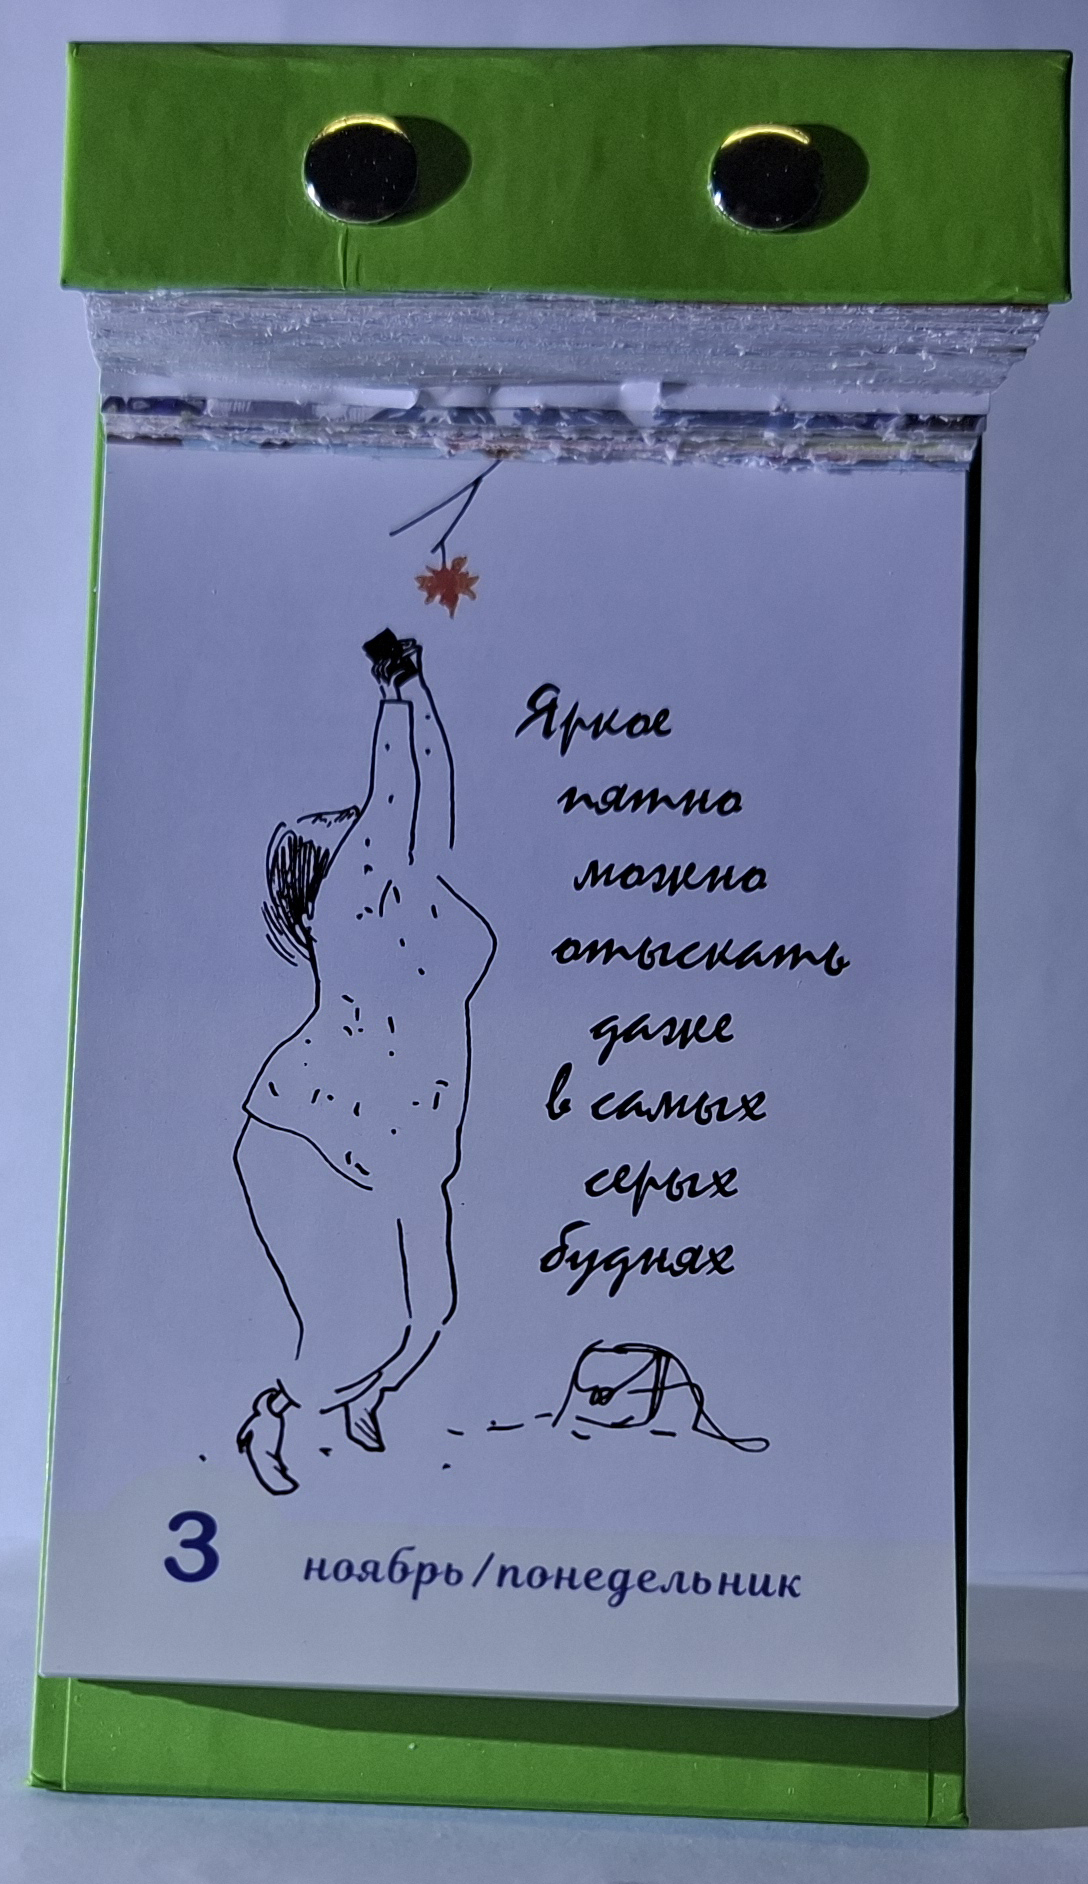 Яркое
пятно
можно
отыскать
даже
в самых
серых
буднях
3
ноябрь/понедельник